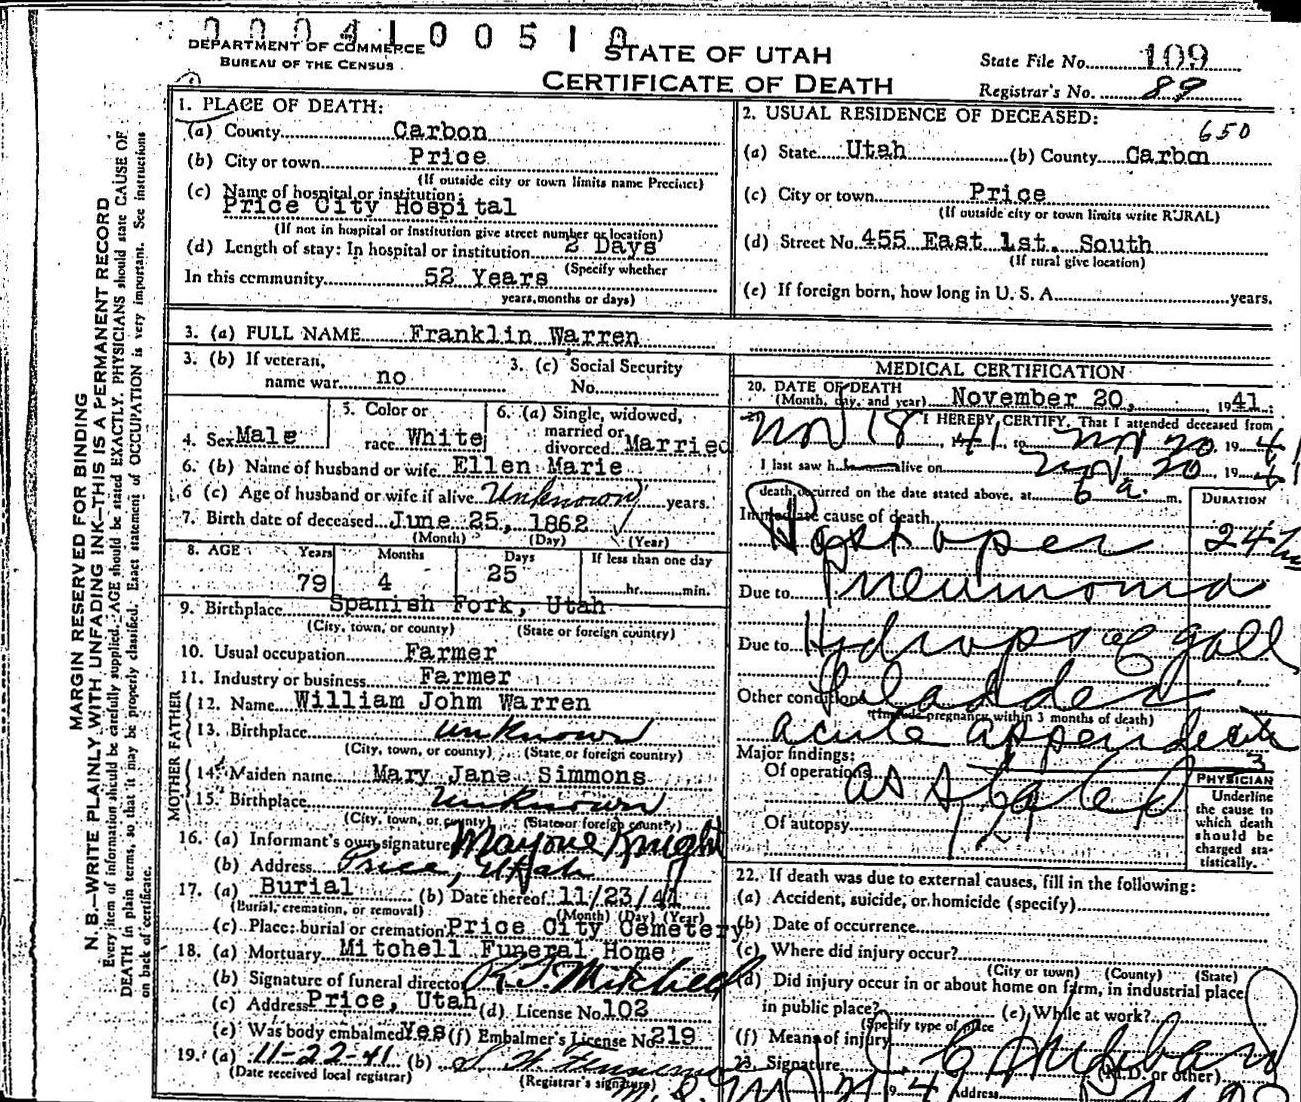 0 0 0 4 1 0 0 5 1 0
DEPARTMENT OF COMMERCE
BUREAU OF THE CENSUS
STATE OF UTAH
CERTIFICATE OF DEATH
State File No. 109
Registrar's No. 89
MARGIN RESERVED FOR BINDING
N. B.—WRITE PLAINLY, WITH UNFADING INK—THIS IS A PERMANENT RECORD
Every item of information should be carefully supplied. AGE should be stated EXACTLY. PHYSICIANS should state CAUSE OF
DEATH in plain terms, so that it may be properly classified. Exact statement of OCCUPATION is very important. See instructions
on back of certificate.
1. PLACE OF DEATH:
(a) County Carbon
(b) City or town Price
(If outside city or town limits name Precinct)
(c) Name of hospital or institution:
Price City Hospital
(If not in hospital or institution give street number or location)
(d) Length of stay: In hospital or institution 2 Days
(Specify whether
In this community 52 Years
years, months or days)
2. USUAL RESIDENCE OF DECEASED:
650
(a) State Utah (b) County Carbon
(c) City or town Price
(If outside city or town limits write RURAL)
(d) Street No. 455 East 1st. South
(If rural give location)
(e) If foreign born, how long in U. S. A. years.
3. (a) FULL NAME Franklin Warren
3. (b) If veteran, name war no
3. (c) Social Security No.
4. Sex Male
5. Color or race White
6. (a) Single, widowed, married or divorced Married
6. (b) Name of husband or wife Ellen Marie
6 (c) Age of husband or wife if alive Unknown years.
7. Birth date of deceased June 25, 1862
(Month) (Day) (Year)
8. AGE Years Months Days If less than one day
79 4 25 hr. min.
9. Birthplace Spanish Fork, Utah
(City, town, or county) (State or foreign country)
10. Usual occupation Farmer
11. Industry or business Farmer
FATHER
12. Name William John Warren
13. Birthplace unknown
(City, town, or county) (State or foreign country)
MOTHER
14. Maiden name Mary Jane Simmons
15. Birthplace unknown
(City, town, or county) (State or foreign country)
16. (a) Informant's own signature Knight
(b) Address Price, Utah
17. (a) Burial (b) Date thereof 11/23/41
(Burial, cremation, or removal) (Month) (Day) (Year)
(c) Place: burial or cremation Price City Cemetery
18. (a) Mortuary Mitchell Funeral Home
(b) Signature of funeral director Mitchell
(c) Address Price, Utah (d) License No. 102
(e) Was body embalmed Yes (f) Embalmer's License No. 219
19. (a) 11-22-41 (b)
(Date received local registrar) (Registrar's signature)
MEDICAL CERTIFICATION
20. DATE OF DEATH
(Month, day, and year) November 20, 1941
I HEREBY CERTIFY, That I attended deceased from
Nov 18 1941, to Nov 20, 1941
I last saw h alive on Nov 20 1941
death occurred on the date stated above, at 6 a. m.
DURATION
Immediate cause of death
Post oper 24
Due to Pneumonia
Due to Hydrops of gall
Bladder
Other conditions
(Include pregnancy within 3 months of death)
acute
Major findings:
Of operations as stated
Of autopsy
PHYSICIAN
Underline
the cause to
which death
should be
charged sta-
tistically.
22. If death was due to external causes, fill in the following:
(a) Accident, suicide, or homicide (specify)
(b) Date of occurrence
(c) Where did injury occur?
(City or town) (County) (State)
(d) Did injury occur in or about home on farm, in industrial place,
in public place? (e) While at work?
(Specify type of place
(f) Means of injury
23. Signature Hubbard
(M.D. or other)
Address